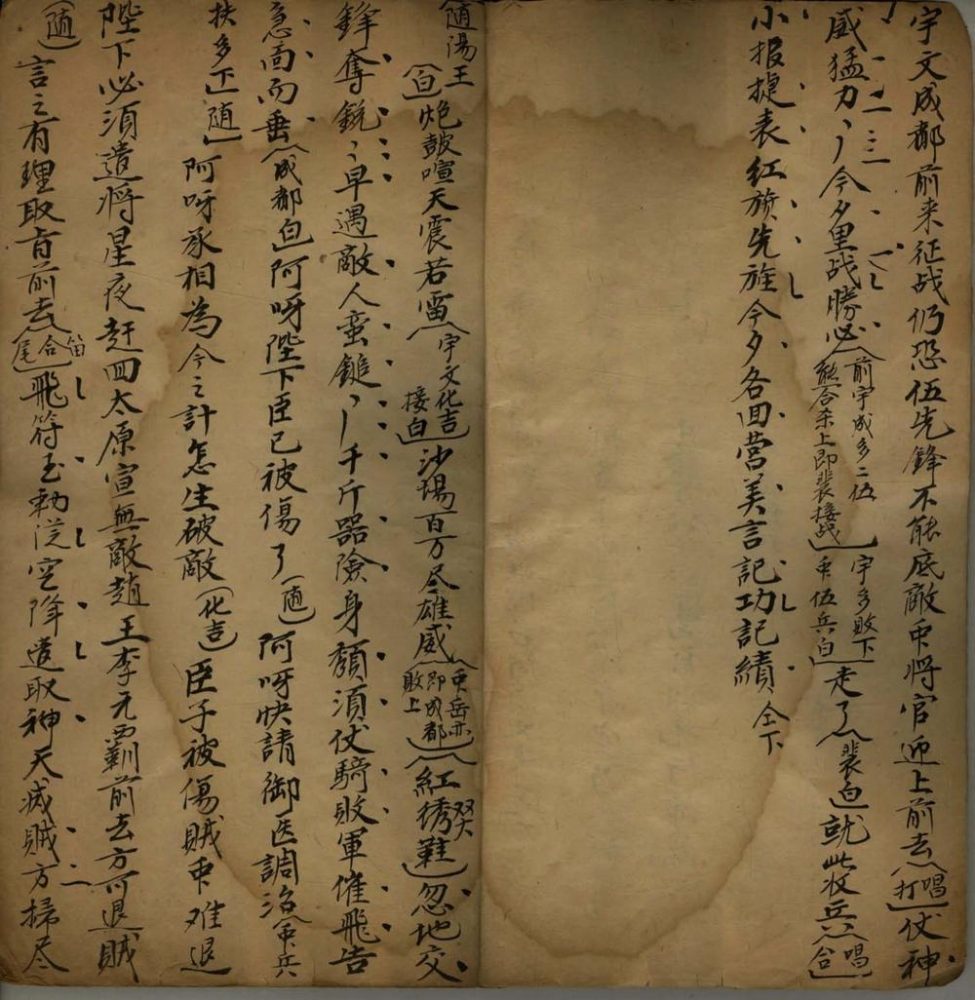 宇文成都前来征战仍恐伍先鋒不能底敵帀将官迎上前去（唱打）伏神
威猛力丶丿今夕里战勝必（前宇成多二伍能合杀上即裴接战）（宇多敗下帀伍兵白）走了（裴白）就此收兵（唱合）
小报捷表红旗先旌今夕各回营美言記功記績 仝下
（随湯王白）炮鼓喧天震若雷（宇文化吉接白）沙場百万尽雄威（帀岳亦即成都敗上）（紅綉鞋）忽地交
鋒奪銳丶早遇敵人蛮鎚丶丿千斤器險身頽須伏騎敗軍催飛告
急面而垂（成都白）阿呀陛下臣已被傷了（随）阿呀快請御医調治（帀兵
扶多下随）阿呀承相為今之計怎生破敵（化吉）臣子被傷賊帀难退
陛下必須遣将星夜赶回太原宣無敵趙王李元覇前去方可退賊
（随）言之有理取旨前去（笛合尾）飛符玉勅従空降遣取神天滅賊方掃尽